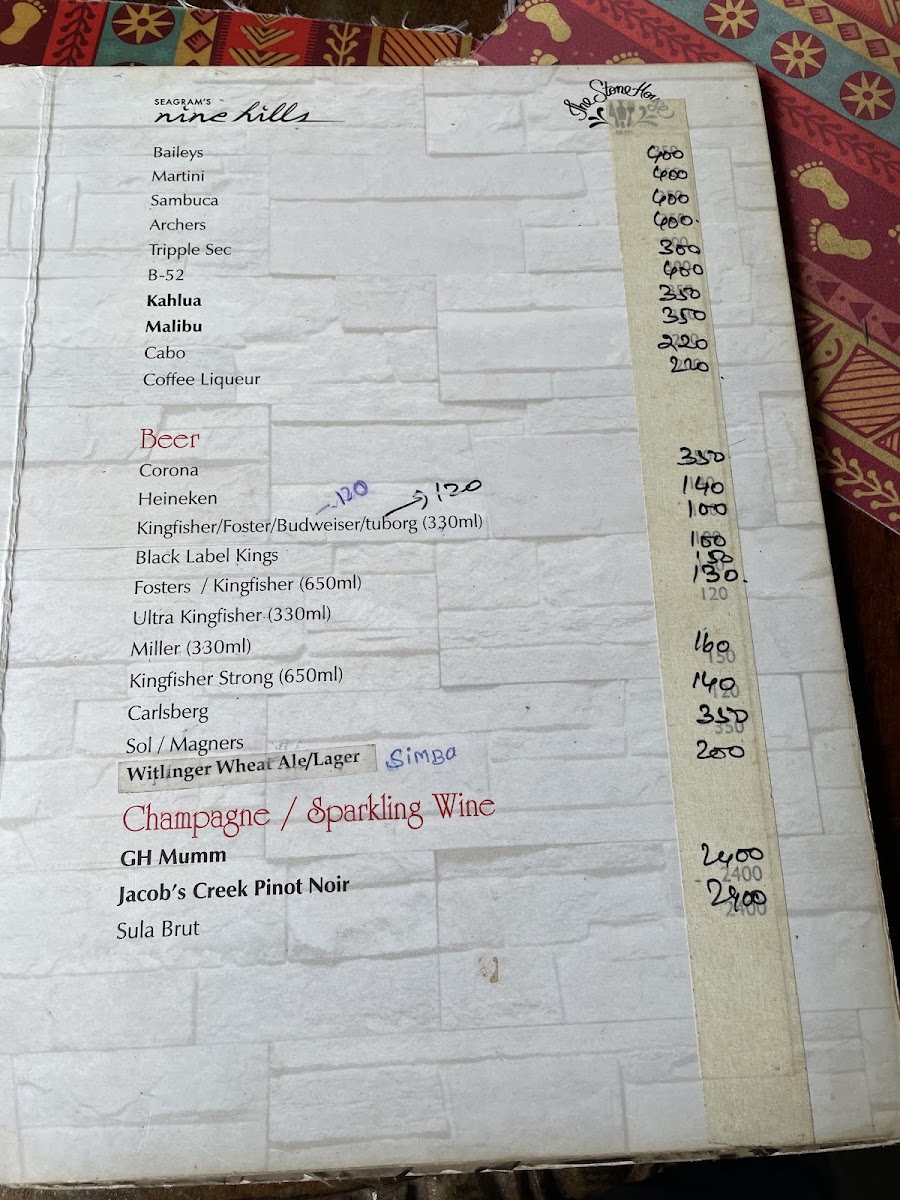 SEAGRAM'S
nine hills
The Stone House
Baileys 400
Martini 400
Sambuca 400
Archers 400.
Tripple Sec 300
B-52 400
Kahlua 350
Malibu 350
Cabo 220
Coffee Liqueur 220
Beer
Corona 350
Heineken 140
- 120 120
Kingfisher/Foster/Budweiser/tuborg (330ml) 100
Black Label Kings 100
Fosters / Kingfisher (650ml) 150
Ultra Kingfisher (330ml) 130. 120
Miller (330ml) 160 150
Kingfisher Strong (650ml) 140 120
Carlsberg 350 350
Sol / Magners 200
Witlinger Wheat Ale/Lager SIMBA
Champagne / Sparkling Wine
GH Mumm 2400 2400
Jacob's Creek Pinot Noir 2400 2400
Sula Brut